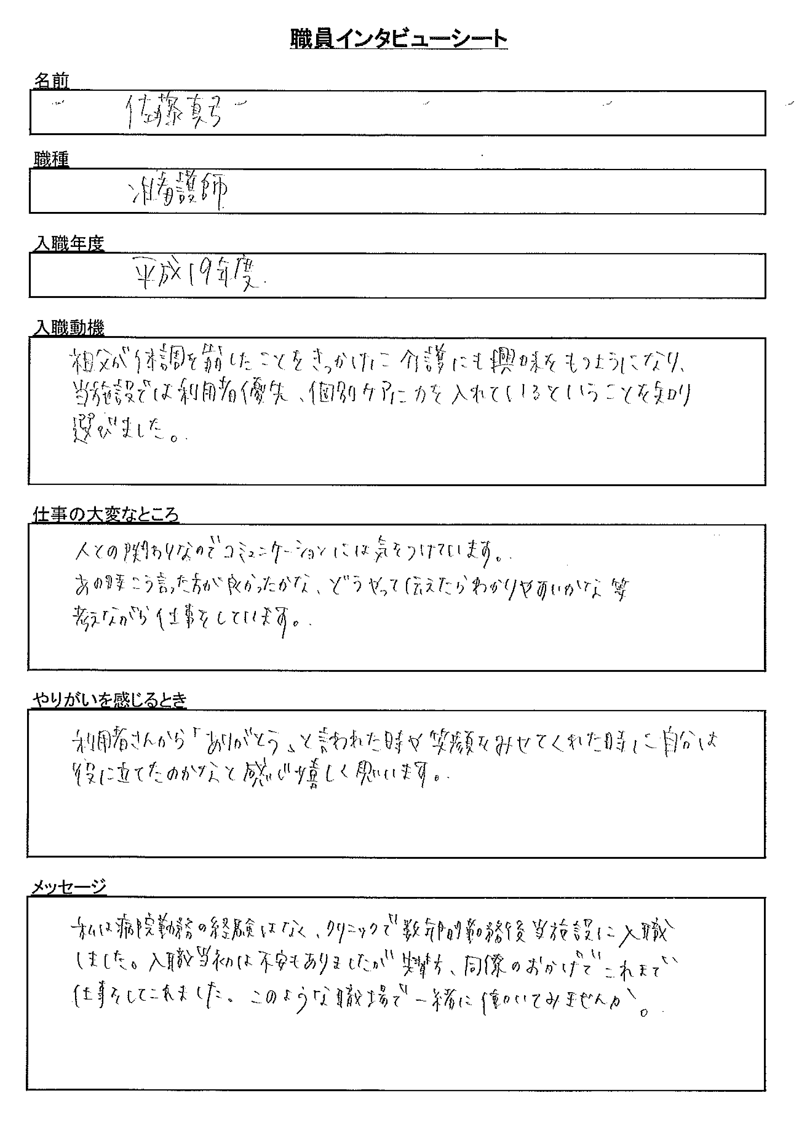 職員インタビューシート
名前
佐藤真弓
職種
准看護師
入職年度
平成19年度
入職動機
祖父が体調を崩したことをきっかけに介護にも興味をもつようになり、
当施設では利用者優先、個別ケアに力を入れているということを知り
選びました。
仕事の大変なところ
人との関わりなのでコミュニケーションには気をつけています。
あの時こう言った方が良かったかな、どうやって伝えたらわかりやすいかな等
考えながら仕事をしています。
やりがいを感じるとき
利用者さんから「ありがとう」と言われた時や笑顔をみせてくれた時に自分は
役に立てたのかなと感じ嬉しく思います。
メッセージ
私は病院勤務の経験はなく、クリニックで数年的勤務後当施設に入職
しました。入職当初は不安もありましたが 、同僚のおかげでこれまで
仕事をしてこれました。このような職場で一緒に働いてみませんか。